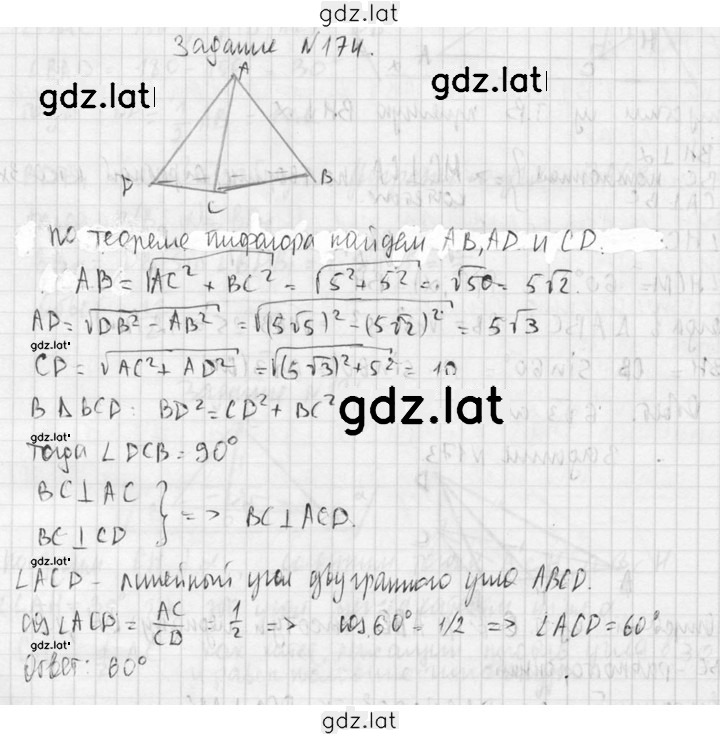 gdz.lat
Задание №174.
A
gdz.lat
gdz.lat
D
B
C
По теореме пифагора найдем AB, AD и CD.
AB = √AC² + BC² = √5² + 5² = √50 = 5√2.
AD = √DB² - AB² = √(5√5)² - (5√2)² = 5√3
gdz.lat
CD = √AC² + AD² = √(5√3)² + 5² = 10
В Δ BCD: BD² = CD² + BC²
gdz.lat
gdz.lat
Тогда ∠DCB = 90°
BC ⊥ AC
BC ⊥ CD
} => BC ⊥ ACD.
gdz.lat
∠ACD - линейный угол двугранного угла ABCD.
cos∠ACD = AC/CD = 1/2 => cos60° = 1/2 => ∠ACD = 60°
gdz.lat
Ответ: 60°
gdz.lat